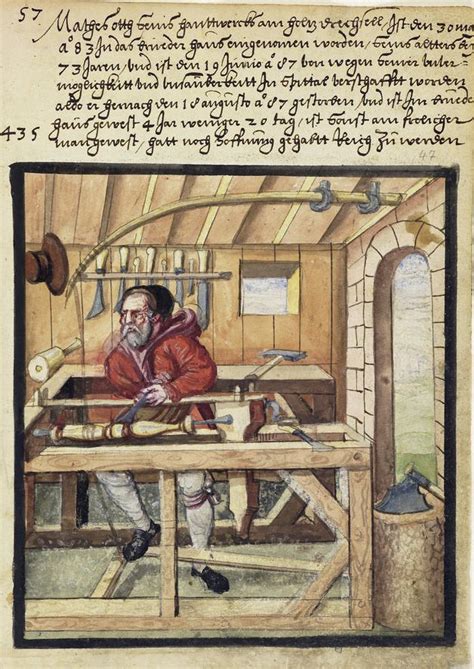 57
Mathes ott seins hantwercks am holtz drechsell, Ist den 30 ma
a 83 In das brueder haus eingenomen worden, seins alters a
73 Jaren, vnd ist den 19 Junio a 87 von wegen seiner
vnd In Spittal verschafft worden
also er hernach den 18 augusto a 87 gestorben, vnd ist Im brueder
haus gewest 4 Jar weniger 20 tag, ist sonst am frolicher
435
man gewest, hatt noch hoffnung gehabtt Reich zu werden
47